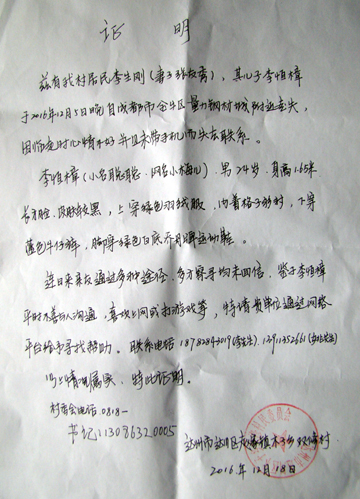 证 明
兹有我村居民李生刚（妻子张女蓉），其儿子李恒樟
于2016年12月5日晚自成都市金牛区量力钢材城附近走失，
因临走时心情不好并且未带手机而失去联系。
李恒樟（小名聪聪、网名小梅儿），男24岁，身高1.65米
长方脸、皮肤较黑，上穿绿色羽绒服，内着格子衬衫，下穿
蓝色牛仔裤，脚穿绿色白底乔丹牌运动鞋。
近日来亲友通过多种途径，多方寻均未回信，鉴于李恒樟
平时不喜与人沟通，喜欢上网或打游戏等，特请贵单位通过网络
平台给予寻找帮助。联系电话 18782843019（李生），13911352661
以上情况属实，特此证明。
村委会电话：0818—
书记：13086320005
达州市达川区木子乡村
2016年12月18日